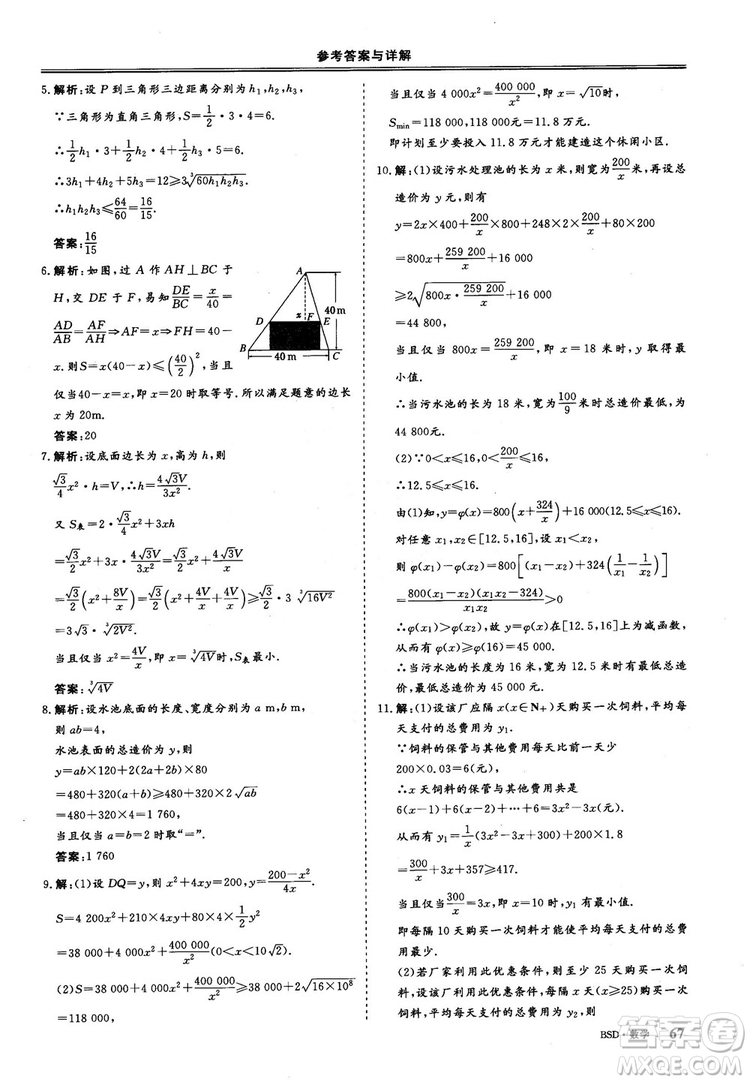 参考答案与详解
5.解析:设 P 到三角形三边距离分别为h₁,h₂,h₃,
∵三角形为直角三角形,S=1/2·3·4=6.
∴1/2h₁·3+1/2h₂·4+1/2h₃·5=6.
∴3h₁+4h₂+5h₃=12≥3∛(60h₁h₂h₃).
∴h₁h₂h₃≤64/60=16/15.
答案:16/15
6.解析:如图,过 A 作 AH⊥BC 于
H,交 DE 于 F,易知DE/BC=x/40
AD/AB=AF/AH⇒AF=x⇒FH=40-
x.则S=x(40-x)≤(40/2)²,当且
仅当40-x=x,即 x=20 时取等号.所以满足题意的边长
x 为 20m.
A
x
40m
D
F
E
B
40m
C
答案:20
7.解析:设底面边长为 x,高为 h,则
√3/4x²·h=V,∴h=4√3V/3x².
又 S表=2·√3/4x²+3xh
=√3/2x²+3x·4√3V/3x²=√3/2x²+4√3V/x
=√3/2(x²+8V/x)=√3/2(x²+4V/x+4V/x)≥√3/2·3∛(16V²)
=3√3·∛(2V²).
当且仅当x²=4V/x,即x=∛(4V)时,S表最小.
答案:∛(4V)
8.解析:设水池底面的长度、宽度分别为 a m,b m,
则 ab=4,
水池表面的总造价为 y,则
y=ab×120+(2×2a+2×2b)×80
=480+320(a+b)≥480+320×2√(ab)
=480+320×4=1 760,
当且仅当 a=b=2 时取“=”.
答案:1 760
9.解:(1)设 DQ=y,则 x²+4xy=200,y=(200-x²)/4x.
S=4 200x²+210×4xy+80×4×1/2y²
=38 000+4 000x²+400 000/x²(0<x<10√2).
(2)S=38 000+4 000x²+400 000/x²≥38 000+2√(16×10⁸)
=118 000,
当且仅当4 000x²=400 000/x²,即 x=√10时,
Smin=118 000,118 000元=11.8 万元.
即计划至少要投入 11.8 万元才能建造这个休闲小区.
10.解:(1)设污水处理池的长为 x 米,则宽为200/x米,再设总
造价为 y 元,则有
y=2x×400+200/x×2×400+248×2×200/x+80×200
=800x+259 200/x+16 000
≥2√(800x·259 200/x)+16 000
=44 800,
当且仅当 800x=259 200/x,即 x=18(米)时,y 取得最
小值.
∴当污水池的长为 18 米,宽为100/9米时总造价最低,为
44 800元.
(2)∵0<x≤16,0<200/x≤16,
∴12.5≤x≤16.
由(1)知,y=φ(x)=800(x+324/x)+16 000.
对任意 x₁,x₂∈[12.5,16],设x₁<x₂,
则 φ(x₁)-φ(x₂)=800[(x₁-x₂)+324(1/x₁-1/x₂)]
=800(x₁-x₂)(x₁x₂-324)/x₁x₂>0
∴φ(x₁)>φ(x₂),故 y=φ(x)在[12.5,16]上为减函数,
从而有 φ(x)≥φ(16)=45 000.
∴当污水池的长度为 16 米,宽为 12.5 米时有最低总造
价,最低总造价为 45 000元.
11.解:(1)设该厂应隔 x(x∈N₊)天购买一次饲料,平均每
天支付的总费用为 y₁.
∵饲料的保管与其他费用每天比前一天少
200×0.03=6(元),
∴x 天饲料的保管与其他费用共是
6(x-1)+6(x-2)+…+6=3x²-3x(元).
从而有 y₁=1/x(3x²-3x+300)+200×1.8
=300/x+3x+357≥417.
当且仅当300/x=3x,即 x=10 时,y₁有最小值.
即每隔 10 天购买一次饲料才能使平均每天支付的总费
用最少.
(2)若厂家利用此优惠条件,则至少 25 天购买一次饲
料,设该厂利用此优惠条件,每隔 x 天(x≥25)购买一次
饲料,平均每天支付的总费用为y₂,则
BSD·数学 67
答案圈